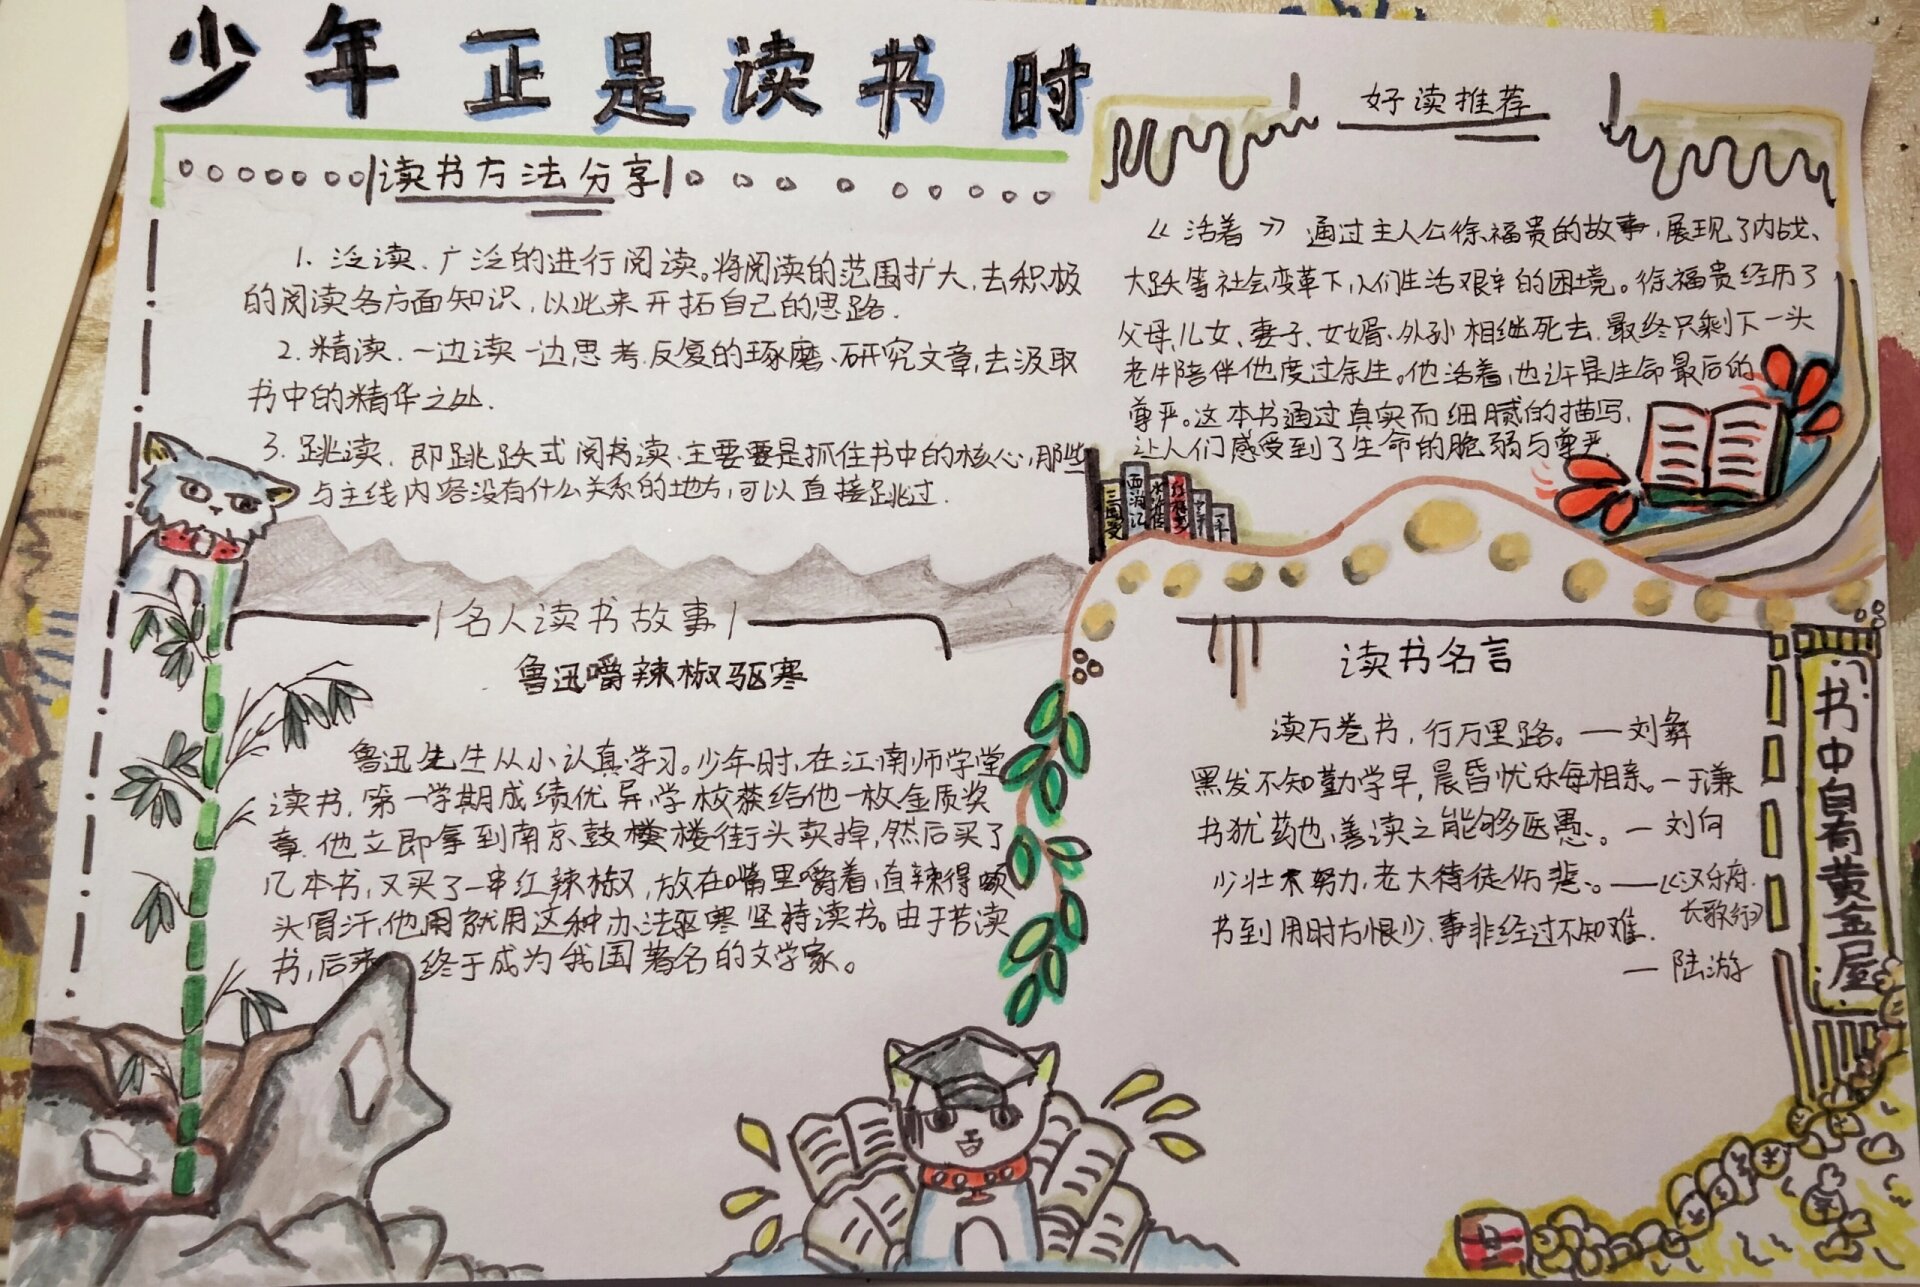 少年正是读书时
读书方法分享
1. 泛读、广泛的进行阅读。将阅读的范围扩大，去积极
的阅读各方面知识，以此来开拓自己的思路.
2. 精读、一边读一边思考.反复的琢磨、研究文章，去汲取
书中的精华之处.
3. 跳读、即跳跃式阅书读、主要要是抓住书中的核心，那些
与主线内容没有什么关系的地方，可以直接跳过.
名人读书故事
鲁迅嚼辣椒驱寒
鲁迅先生从小认真学习。少年时，在江南师学堂
读书，第一学期成绩优异，学校恭给他一枚金质奖
章.他立即拿到南京鼓楼街头卖掉，然后买了
几本书，又买了一串红辣椒，放在嘴里嚼着，直辣得
头冒汗，他用就用这种办法驱寒坚持读书。由于苦读
书，后来 终于成为我国著名的文学家。
好读推荐
《活着》通过主人公徐福贵的故事，展现了内战、
大跃等社会变革下，人们生活艰辛的困境。徐福贵经历了
父母、儿女、妻子、女婿、外孙相继死去.最终只剩下一头
老牛陪伴他度过余生。他活着，也许是生命最后的
尊严。这本书通过真实而细腻的描写，
让人们感受到了生命的脆弱与尊严.
三国
西游记
水浒传
红楼梦
读书名言
读万卷书，行万里路。——刘彝
黑发不知勤学早，晨昏忧乐每相亲。—于谦
书犹药也，善读之能够医愚。—刘向
少壮木努力，老大待徒伤悲。——《汉乐府.
长歌行》
书到用时方恨少、事非经过不知难.
—陆游
书中自有黄金屋